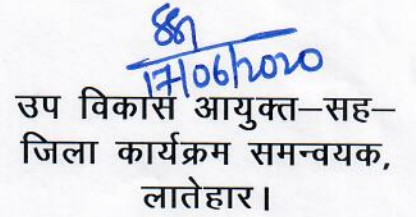 17/06/2020
उप विकास आयुक्त–सह–
जिला कार्यक्रम समन्वयक,
लातेहार।